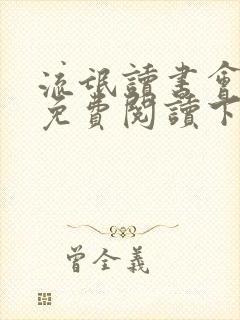 流氓讀書會
免費閱讀下
曾全義